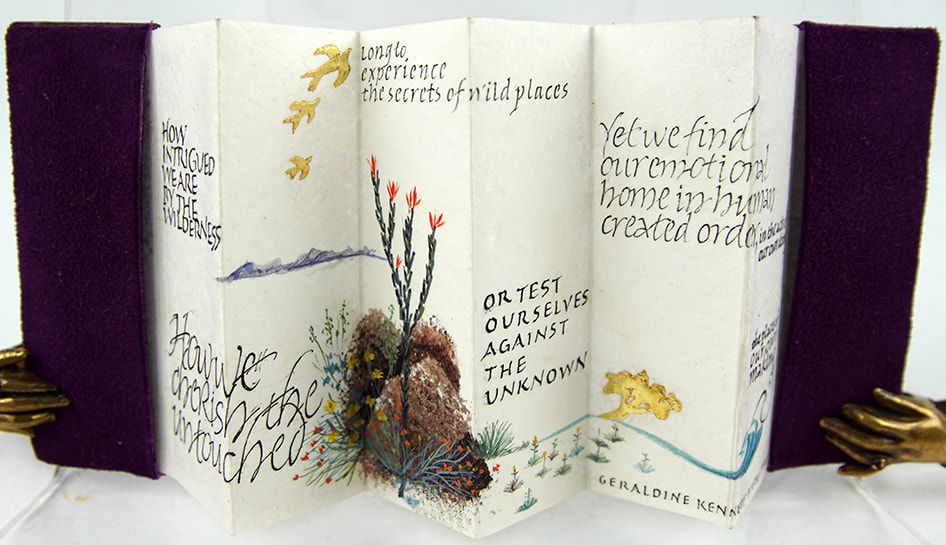 HOW
INTRIGUED
WE ARE
BY THE
WILDERNESS
How we
cherish the
untouched
long to
experience
the secrets of wild places
OR TEST
OURSELVES
AGAINST
THE
UNKNOWN
Yet we find
our emotional
home in human
created order,
in the
our own
GERALDINE
the places